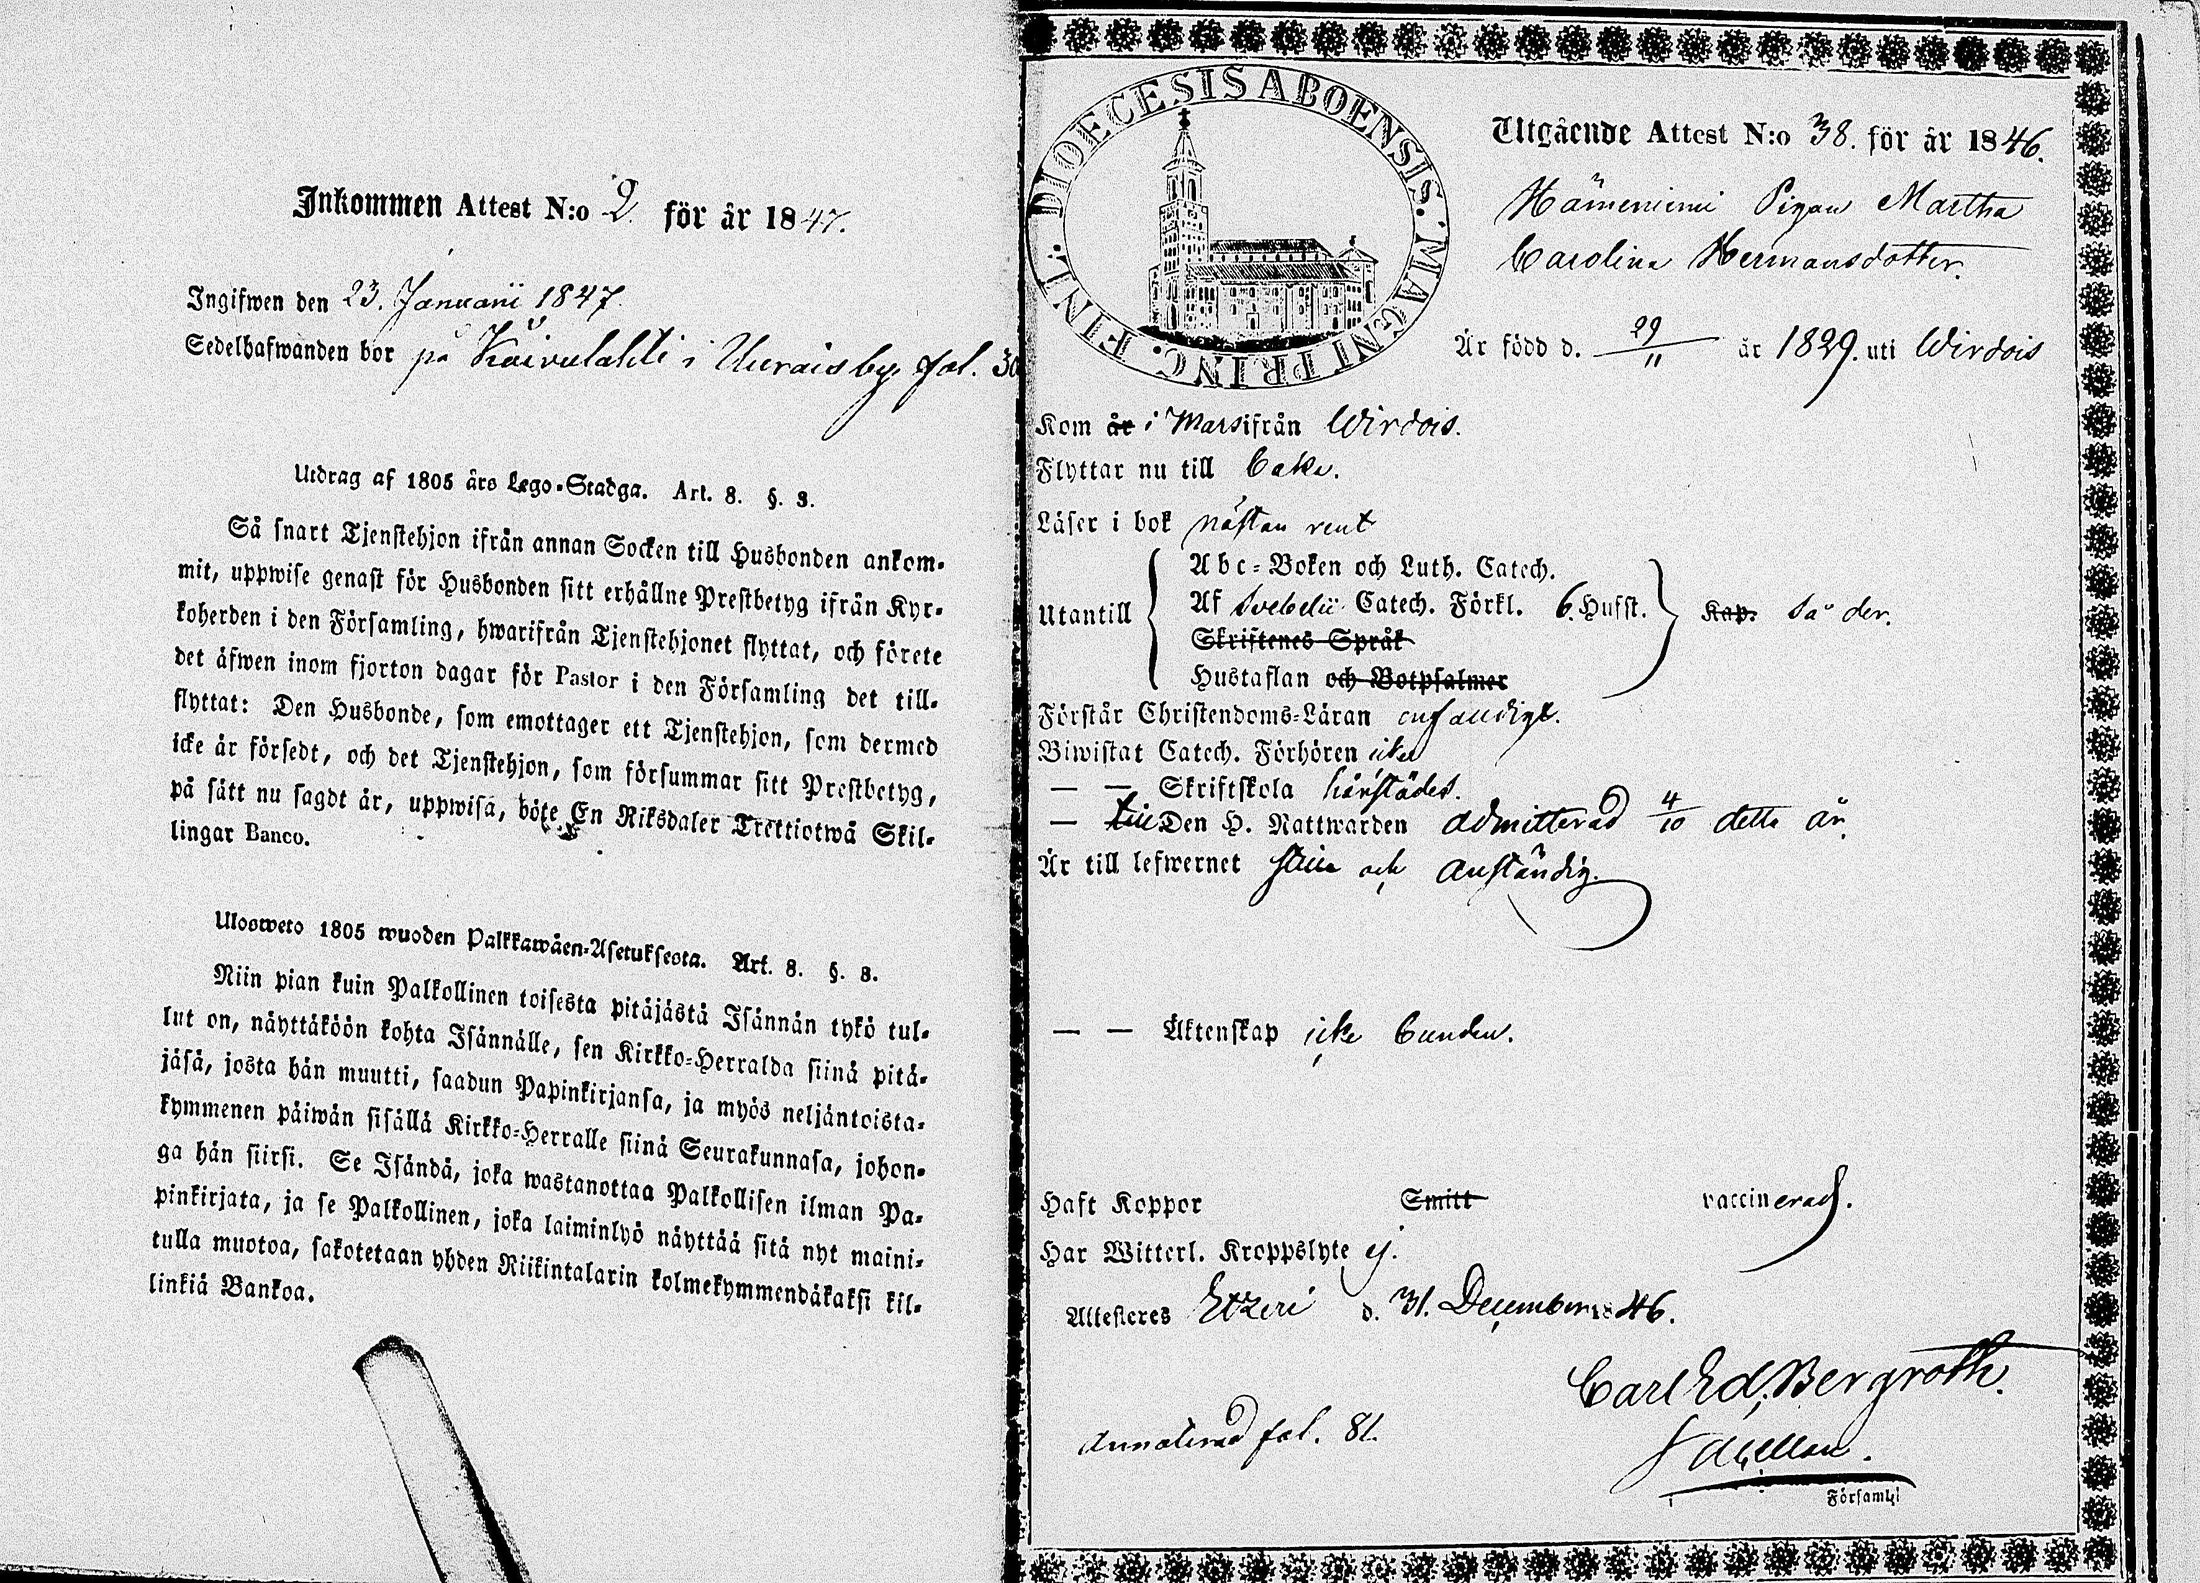 Inkommen Attest N:o 2. för år 1847.
Ingifwen den 23. Januarii 1847.
Sedelhafwanden bor på Koivulahti i Uurais by. fol. 30
Utdrag af 1805 års Lego-Stadga. Art. 8. §. 3.
Så snart Tjenstehjon ifrån annan Socken till Husbonden ankom-
mit, uppwise genast för Husbonden sitt erhållne Prestbetyg ifrån Kyr-
koherden i den Församling, hwarifrån Tjenstehjonet flyttat, och förete
det äfwen inom fjorton dagar för Pastor i den Församling det till-
flyttat: Den Husbonde, som emottager ett Tjenstehjon, som dermed
icke är försedt, och det Tjenstehjon, som försummar sitt Prestbetyg,
på sätt nu sagdt är, uppwisa, böte En Riksdaler Trettiotwå Skil-
lingar Banco.
Ulosweto 1805 wuoden Palkkawäen-Asetuksesta. Art. 8. §. 3.
Niin pian kuin Palkollinen toisesta pitäjästä Isännän tykö tul-
lut on, näyttäköön kohta Isännälle, sen Kirkko-Herralda siinä pitä-
jäsä, josta hän muutti, saadun Papinkirjansa, ja myös neljäntoista-
kymmenen päiwän sisällä Kirkko-Herralle siinä Seurakunnasa, johon-
ga hän siirsi. Se Isändä, joka wastanottaa Palkollisen ilman Pa-
pinkirjata, ja se Palkollinen, joka laiminlyö näyttää sitä nyt maini-
tulla muotoa, sakotetaan yhden Riikintalarin kolmekymmendäkaksi kil-
linkiä Bankoa.
DIOECESIS ABOENSIS. MAGNI PRINC. FINL.
Utgående Attest N:o 38. för år 1846.
Hämeniemi Pigan Martha
Carolina Hermansdotter.
Är född d. 29/11 år 1829. uti Wirdois
Kom år i Mars ifrån Wirdois.
Flyttar nu till
Läser i bok nästan rent
Abc-Boken och Luth. Catech.
Utantill Af Svebelii Catech. Förkl. 6. Hufst. Kap. så der.
Skriftenes Språk
Hustaflan och Botpsalmer
Förstår Christendoms-Läran
Biwistat Catech. Förhören icke
— — Skriftskola härstädes.
— till Den H. Nattwarden admitterad 4/10 detta år.
Är till lefwernet stilla och anständig.
— — Äktenskap icke bunden.
Haft Koppor Smitt vaccinerad.
Har Witterl. Kroppslyte ej.
Attesteres Etzeri d. 31. December 1846.
Carl Ed. Bergroth.
Annoterad fol. 81.
Församl.